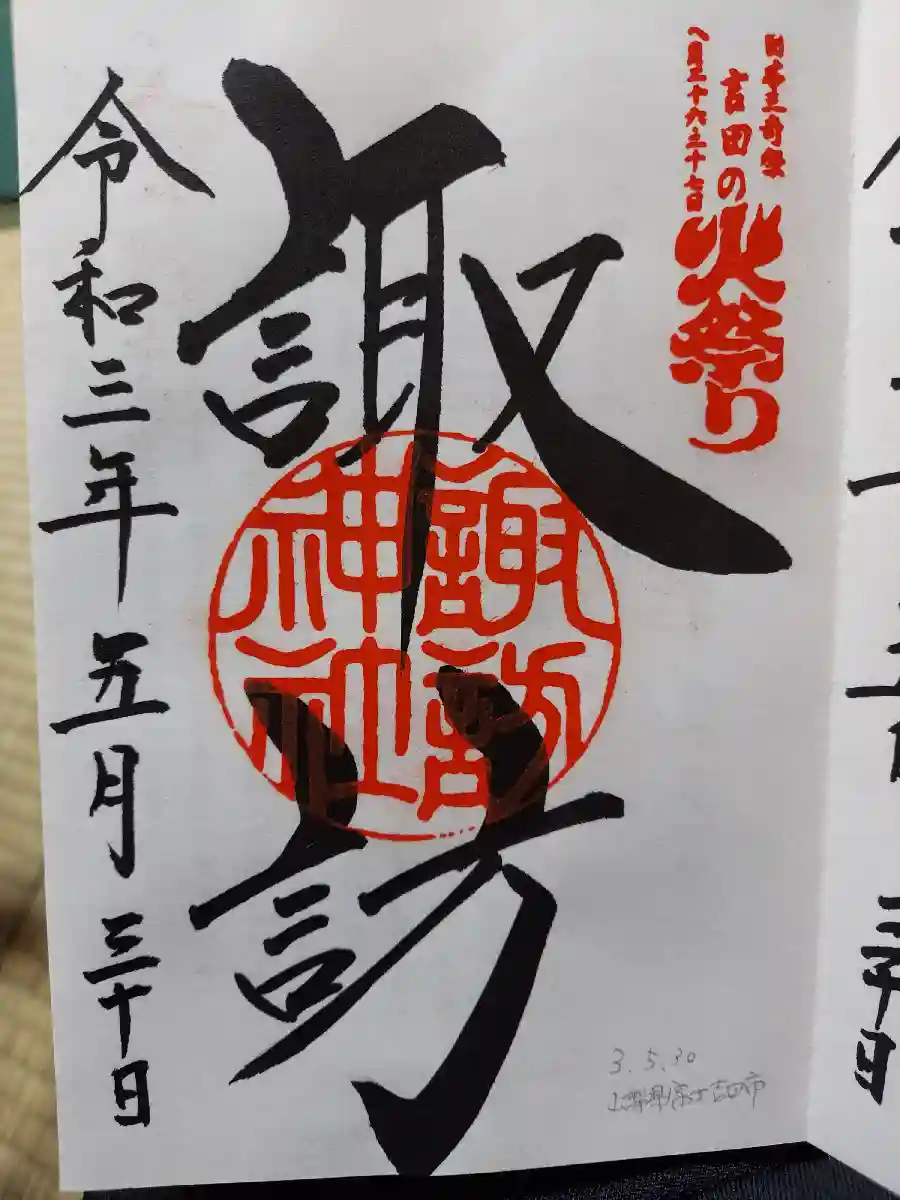 日本三奇祭
吉田の火祭り
八月二十六二十七日
諏訪
諏訪
神社
令和三年五月三十日
3.5.30
山梨県富士吉田市